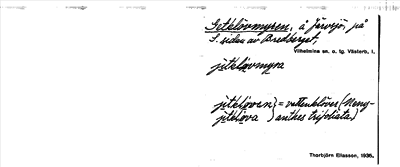 Getklövmyren, å Järvsjö, på
S. sidan av Bredberget,
Vilhelmina sn. o. tg. Västerb. l.
jitklövmyra
jitklöven } = vattenklöver (Meny-
jitklöva } anthes trifoliata)
Thorbjörn Eliasson, 1935.